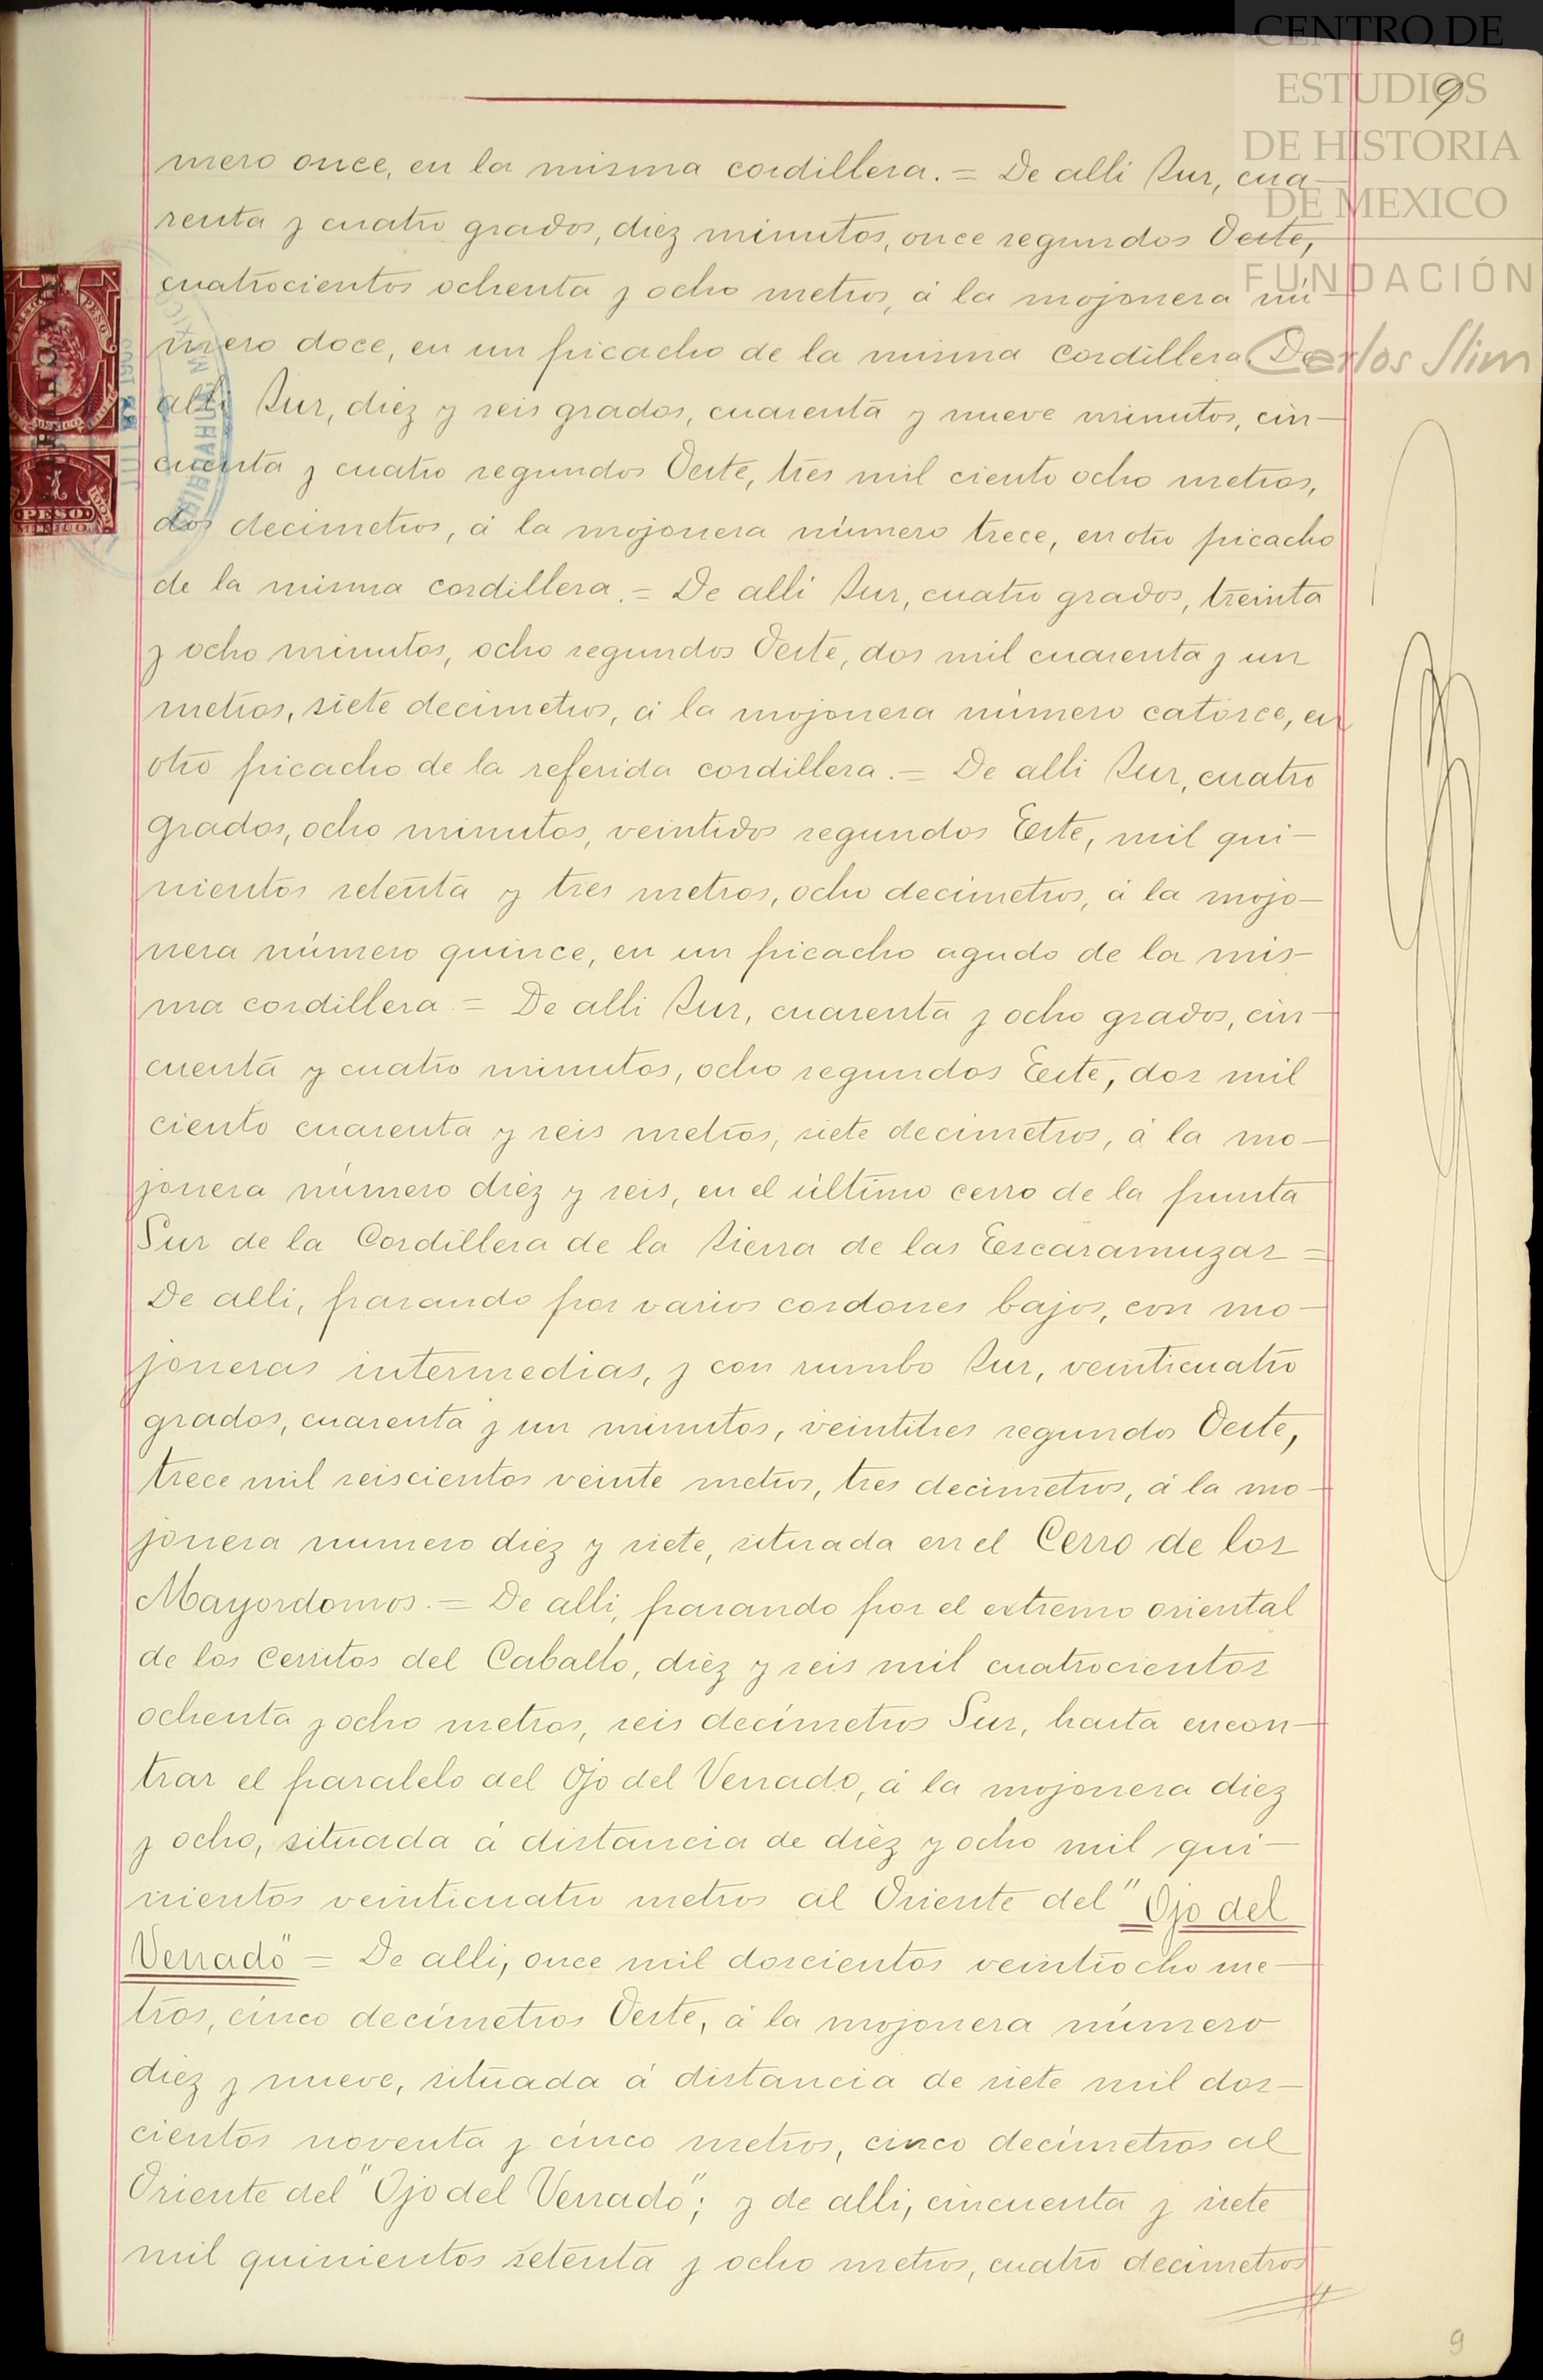 CENTRO DE
ESTUDIOS
DE HISTORIA
DE MEXICO
FUNDACIÓN
Carlos Slim
9
mero once, en la misma cordillera. = De alli Sur, cua-
renta y cuatro grados, diez minutos, once segundos Oeste,
cuatrocientos ochenta y ocho metros, á la mojonera nú-
mero doce, en un picacho de la misma cordillera. De
alli Sur, diez y seis grados, cuarenta y nueve minutos, cin-
cuenta y cuatro segundos Oeste, tres mil ciento ocho metros,
dos decimetros, á la mojonera número trece, en otro picacho
de la misma cordillera. = De alli Sur, cuatro grados, treinta
y ocho minutos, ocho segundos Oeste, dos mil cuarenta y un
metros, siete decimetros, á la mojonera número catorce, en
otro picacho de la referida cordillera. = De alli Sur, cuatro
grados, ocho minutos, veintidos segundos Este, mil qui-
nientos setenta y tres metros, ocho decimetros, á la mojo-
nera número quince, en un picacho agudo de la mis-
ma cordillera = De alli Sur, cuarenta y ocho grados, cin-
cuenta y cuatro minutos, ocho segundos Este, dos mil
ciento cuarenta y seis metros, siete decimetros, á la mo-
jonera número diez y seis, en el último cerro de la punta
Sur de la Cordillera de la Sierra de las Escaramuzas =
De alli, pasando por varios cordones bajos, con mo-
joneras intermedias, y con rumbo Sur, veinticuatro
grados, cuarenta y un minutos, veintitres segundos Oeste,
trece mil seiscientos veinte metros, tres decimetros, á la mo-
jonera numero diez y siete, situada en el Cerro de los
Mayordomos. = De alli, pasando por el extremo oriental
de los Cerritos del Caballo, diez y seis mil cuatrocientos
ochenta y ocho metros, seis decímetros Sur, hasta encon-
trar el paralelo del Ojo del Venado, á la mojonera diez
y ocho, situada á distancia de diez y ocho mil qui-
nientos veinticuatro metros al Oriente del "Ojo del
Venado" = De alli, once mil doscientos veintiocho me-
tros, cinco decímetros Oeste, á la mojonera número
diez y nueve, situada á distancia de siete mil dos-
cientos noventa y cinco metros, cinco decímetros al
Oriente del "Ojo del Venado"; y de alli, cincuenta y siete
mil quinientos setenta y ocho metros, cuatro decimetros
PESO
1
PESO
MEXICO
CHIHUAHUA
9